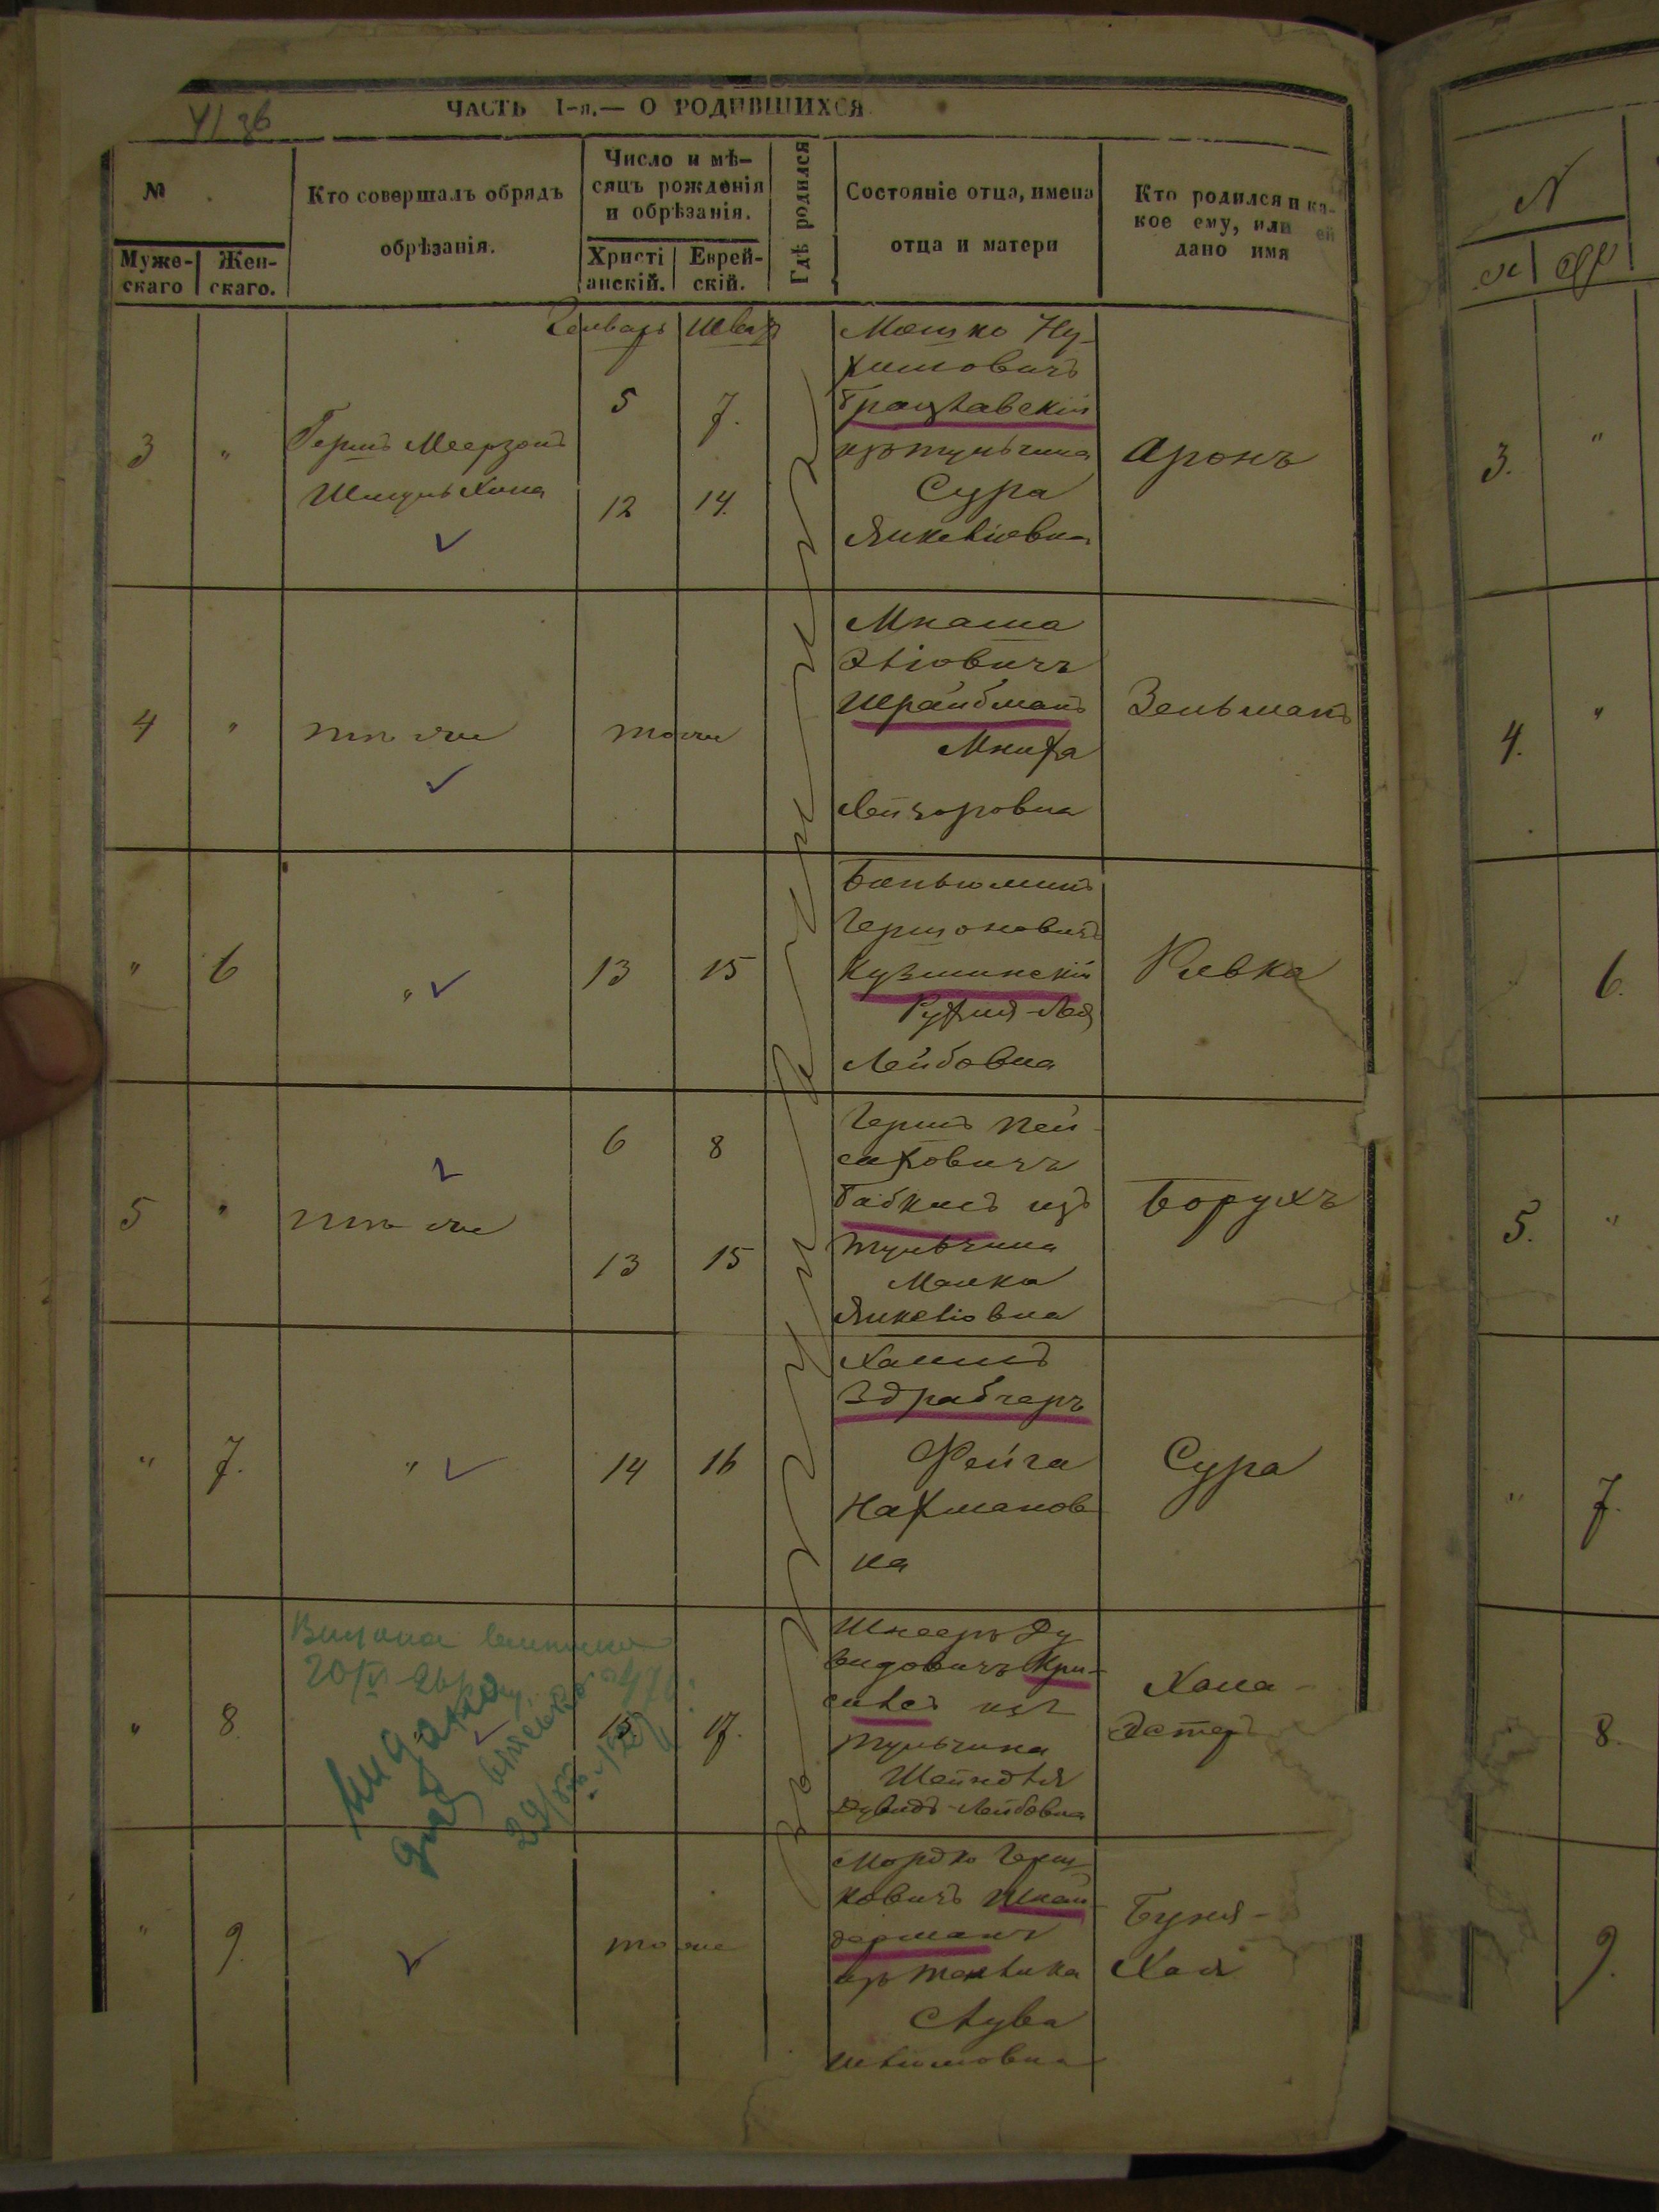 ЧАСТЬ I-я.— О РОДИВШИХСЯ
№
Муже-
скаго
Жен-
скаго.
Кто совершалъ обрядъ
обрѣзанія.
Число и мѣ-
сяцъ рожденія
и обрѣзанія.
Христі
анскій.
Еврей-
скій.
Гдѣ родился
Состояніе отца, имена
отца и матери
Кто родился и ка-
кое ему, или ей
дано имя
Генварь Шватъ
3 "
Гершъ Меерзонъ
Шмуль Хина
5 7.
12 14.
Мошко Ну-
химовичъ
Брацлавскій
изъ Тульчина
Сура
Янкеліовна
Аронъ
4 "
тѣ же
тоже
Мнаша
Эліовичъ
Шрайбманъ
Мниха
Лейзоровна
Зельманъ
" 6
"
13 15
Беньюминъ
Гершоновичъ
Кузминскій
Рухля-Лея
Лейбовна
Ривка
5 "
тѣ же
6 8
13 15
Гершъ Пей-
саховичъ
Бабкисъ изъ
Тульчина
Малка
Янкеліовна
Борухъ
" 7.
"
14 16
Хаимъ
Здрабчеръ
Фейга
Нахманов
на
Сура
" 8.
15 17.
Шнееръ Ду
видовичъ Кри-
изъ
Тульчина
Шейндля
Дувидъ-Лейбовна
Хана-
Эстеръ
" 9.
тоже
Мордко Герш-
ковичъ Шнай-
дерманъ
изъ
Слува
Шліомовна
Буня-
Хая
№
м ж
3. "
4. "
6.
5. "
" 7.
8.
9.